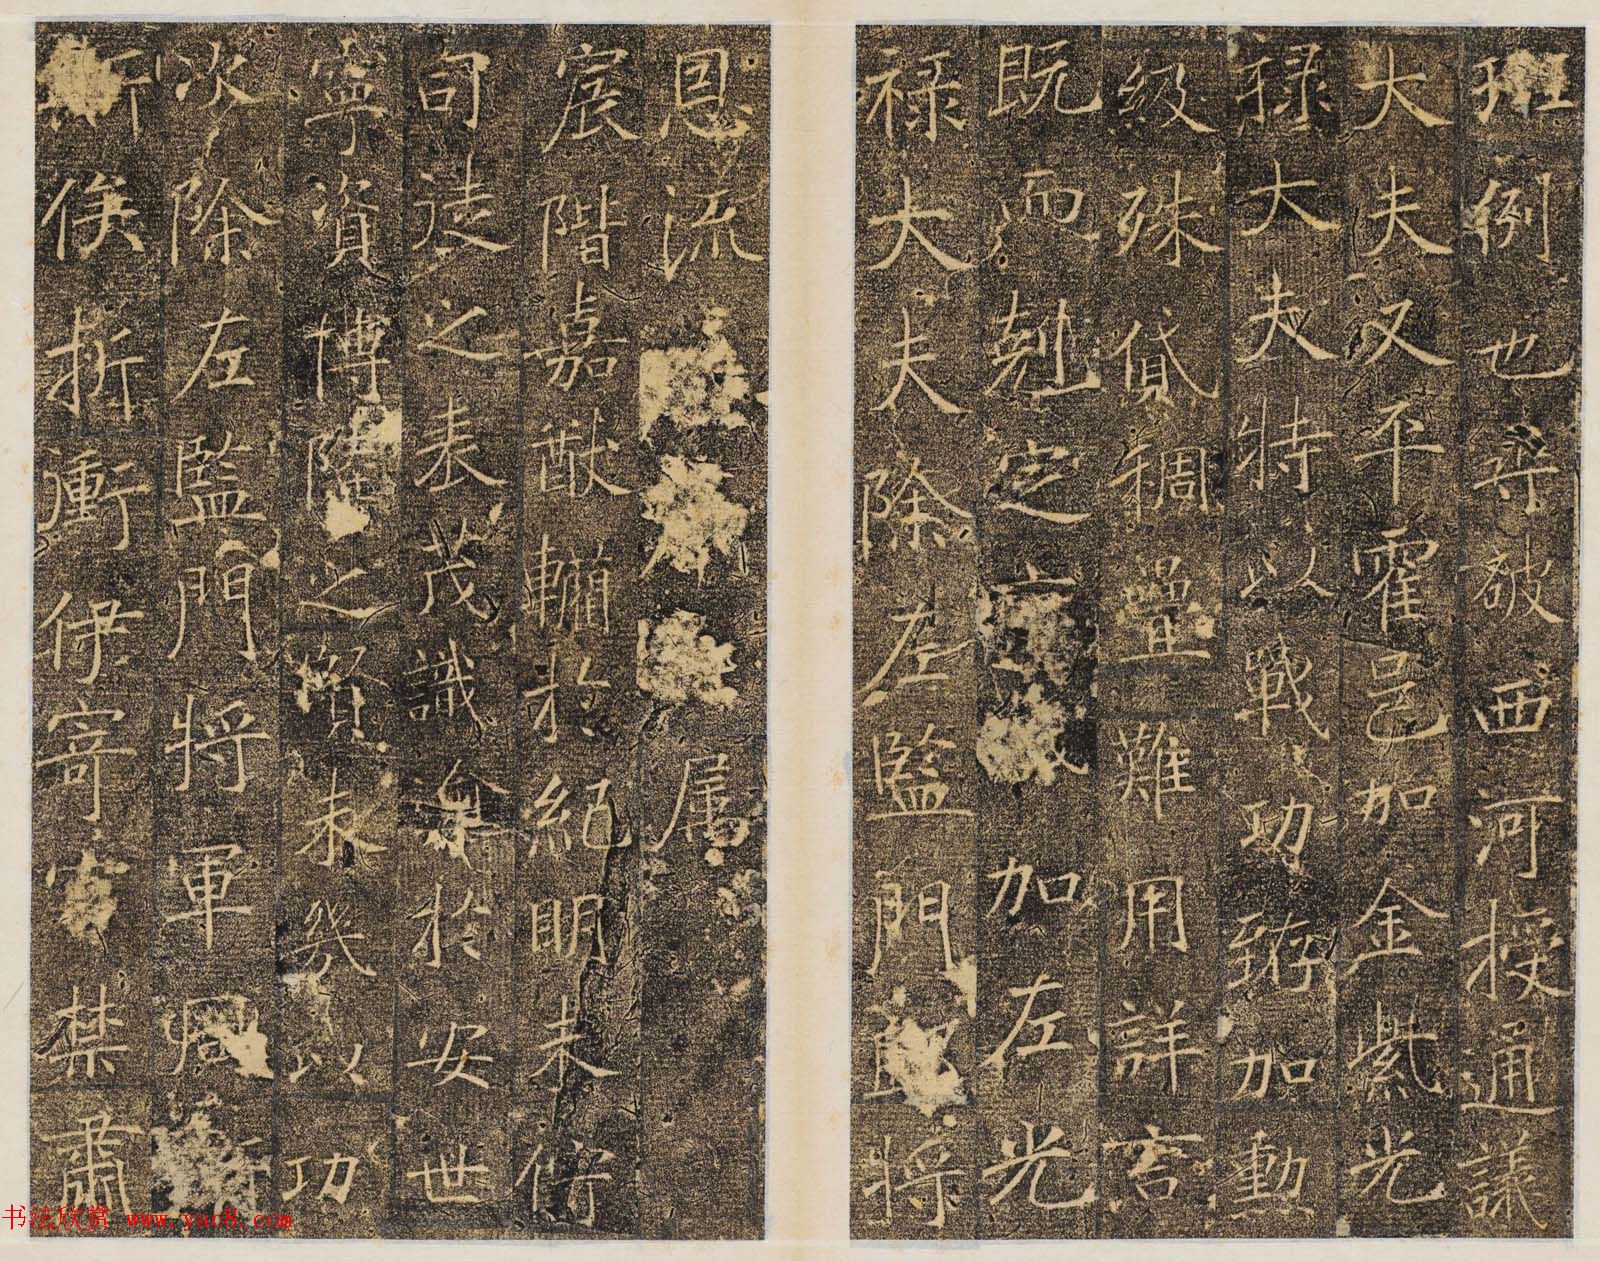 班例也尋破西河授通議
大夫又平霍邑加金紫光
祿大夫特以戰功錫加勳
級殊貸稠疊難用詳言
既而剋定加左光
祿大夫除左監門將
恩流属
宸階嘉猷輶於紀明未侔
司徒之表茂識於安世
寧資博陸之賢未幾以功
次除左監門將軍
侯折衝伊寄禁肅
书法欣赏 www.yac8.com